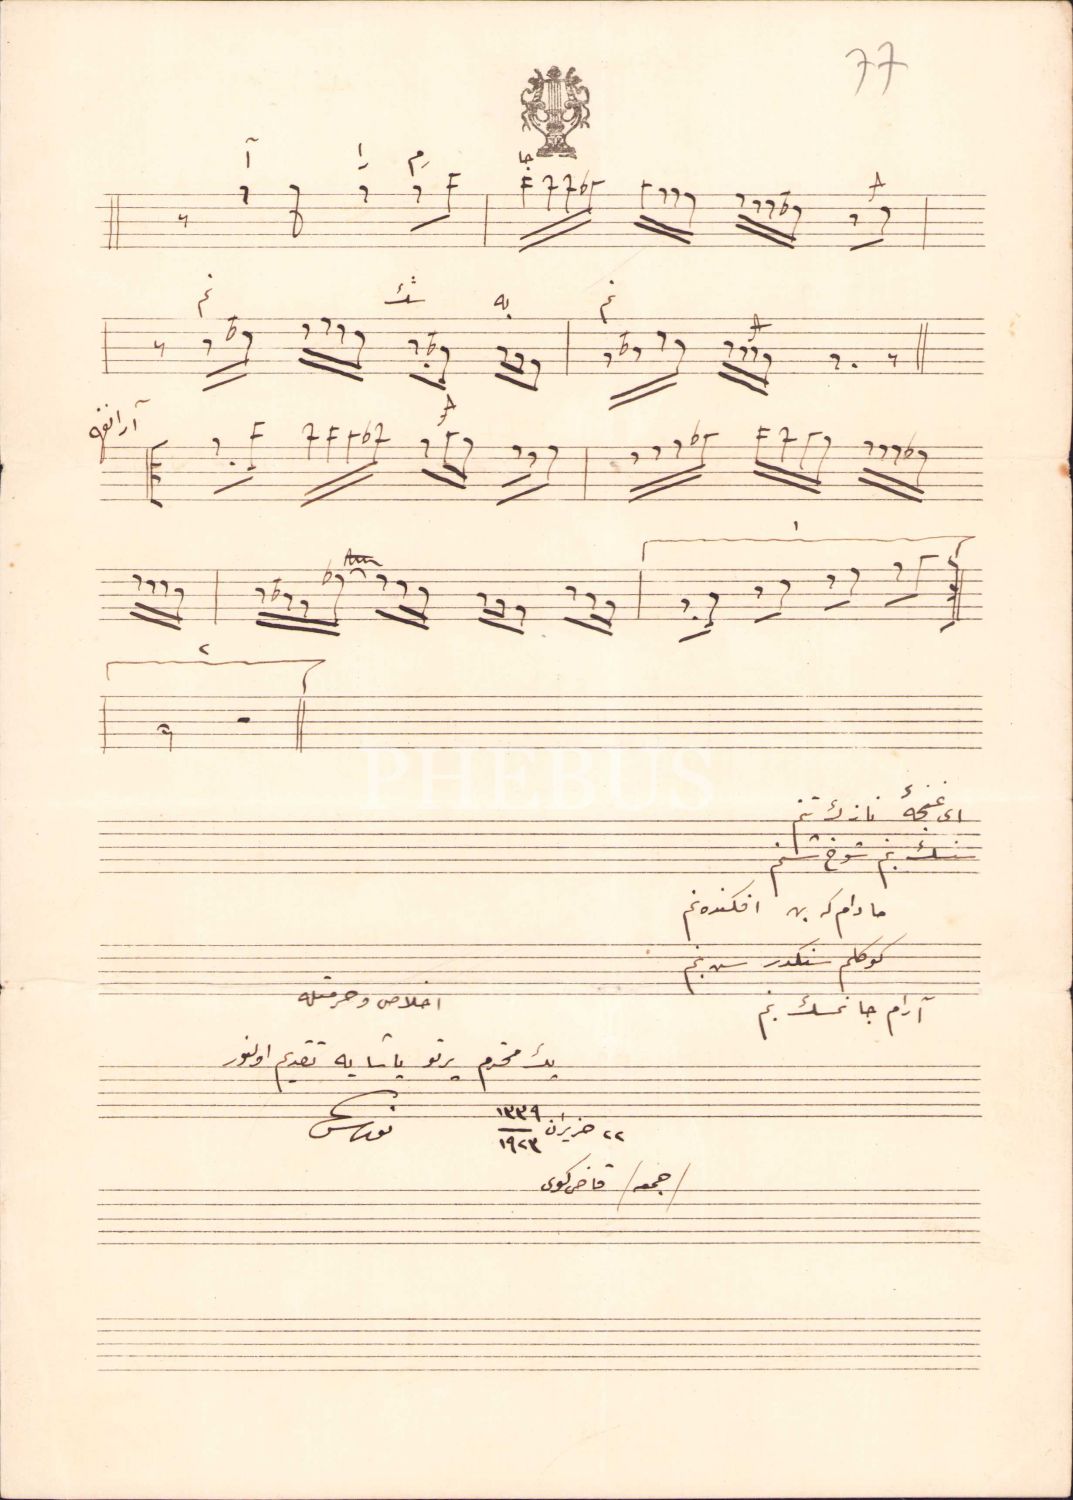 77
آ را م جا
نم سڭ به نم
آرانغمه
١
٢
PHEBUS
ای غنچهٔ نازك تنم
سنك بنم شوخ شنم
مادام كه بن افكنده نم
كوكلم سنكدر سن بنم
آرام جانمسك بنم
اخلاص و حرمتله
پك محترم پرتو پاشا يه تقديم اولنور
٢٢ حزيران ١٣٣٩
١٩٢٣
/جمعه/ قاضی كوی